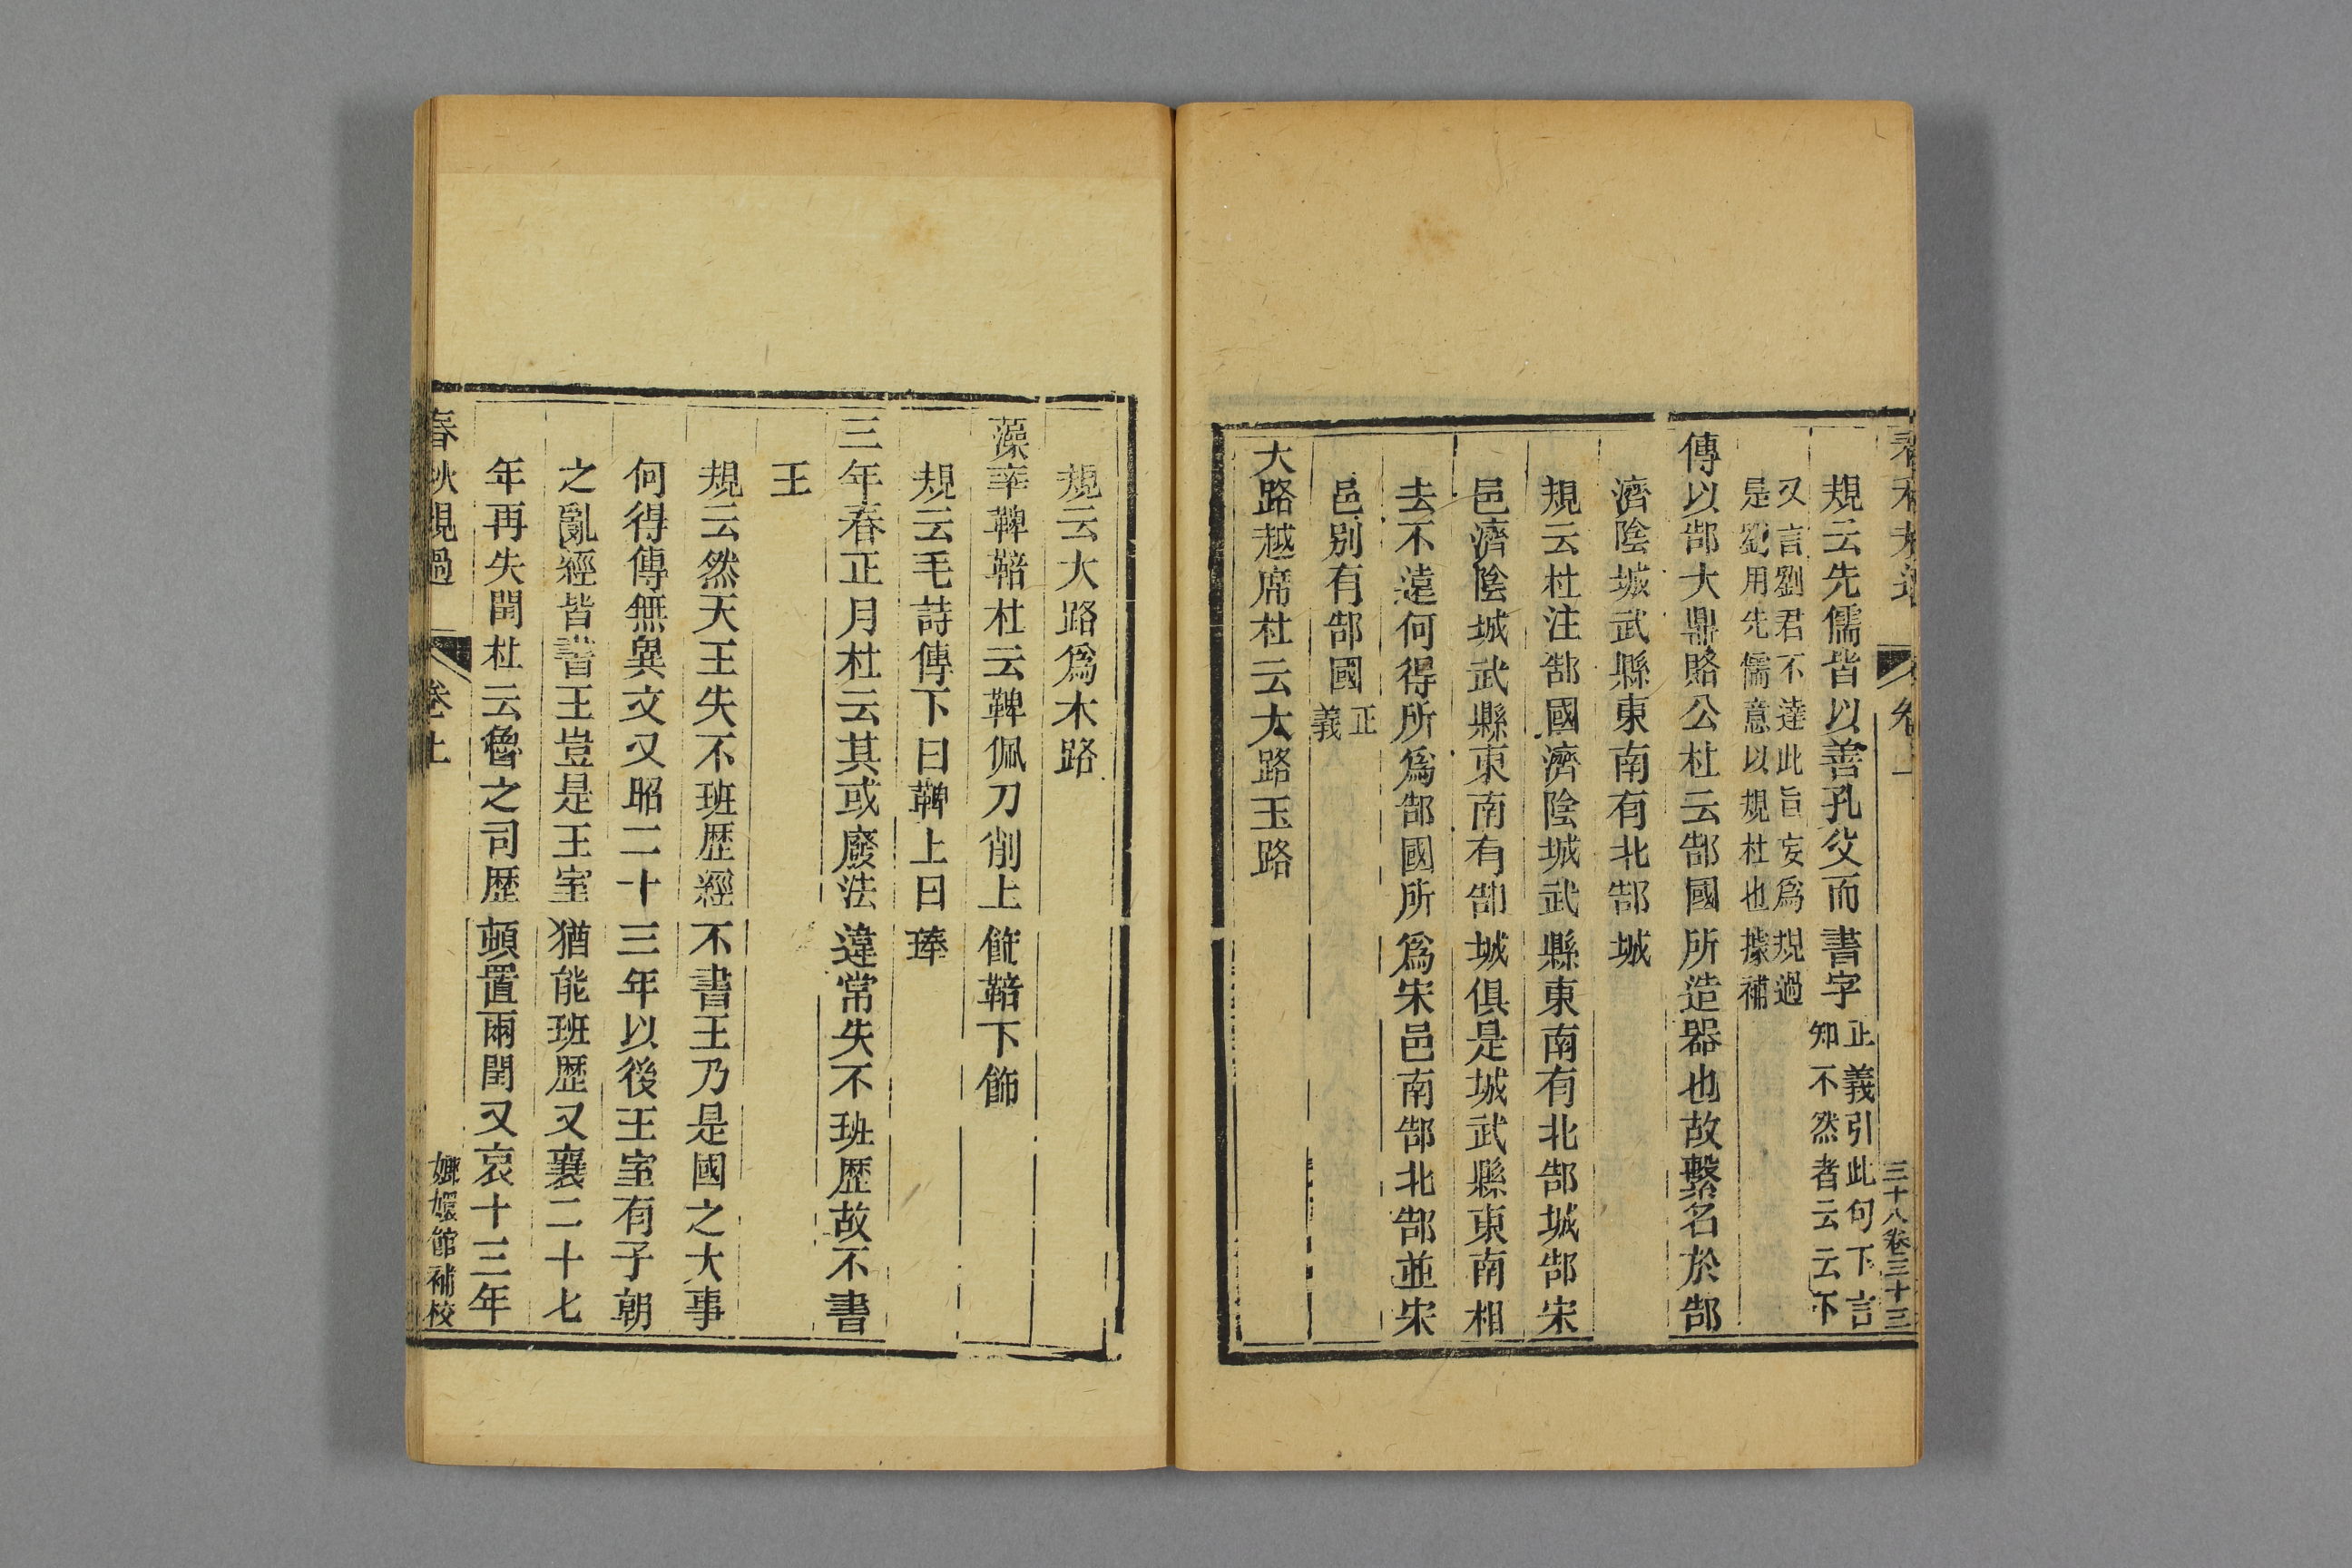 三十八卷三十三
規云先儒皆以善孔父而書字正義引此句下言
知不然者云云下
又言劉君不達此旨妄爲規過
是劉用先儒意以規杜也據補
傳以郜大鼎賂公杜云郜國所造器也故繫名於郜
濟陰城武縣東南有北郜城
規云杜注郜國濟陰城武縣東南有北郜城郜宋
邑濟陰城武縣東南有郜城俱是城武縣東南相
去不遠何得所爲郜國所爲宋邑南郜北郜並宋
邑別有郜國正
義
大路越席杜云大路玉路
規云大路爲木路
藻率鞞鞛杜云鞞佩刀削上飾鞛下飾
規云毛詩傳下曰鞞上曰琫
三年春正月杜云其或廢法違常失不班歷故不書
王
規云然天王失不班歷經不書王乃是國之大事
何得傳無異文又昭二十三年以後王室有子朝
之亂經皆書王豈是王室猶能班歷又襄二十七
年再失閏杜云魯之司歷頓置兩閏又哀十三年
春秋規過
卷上
嫏嬛館補校